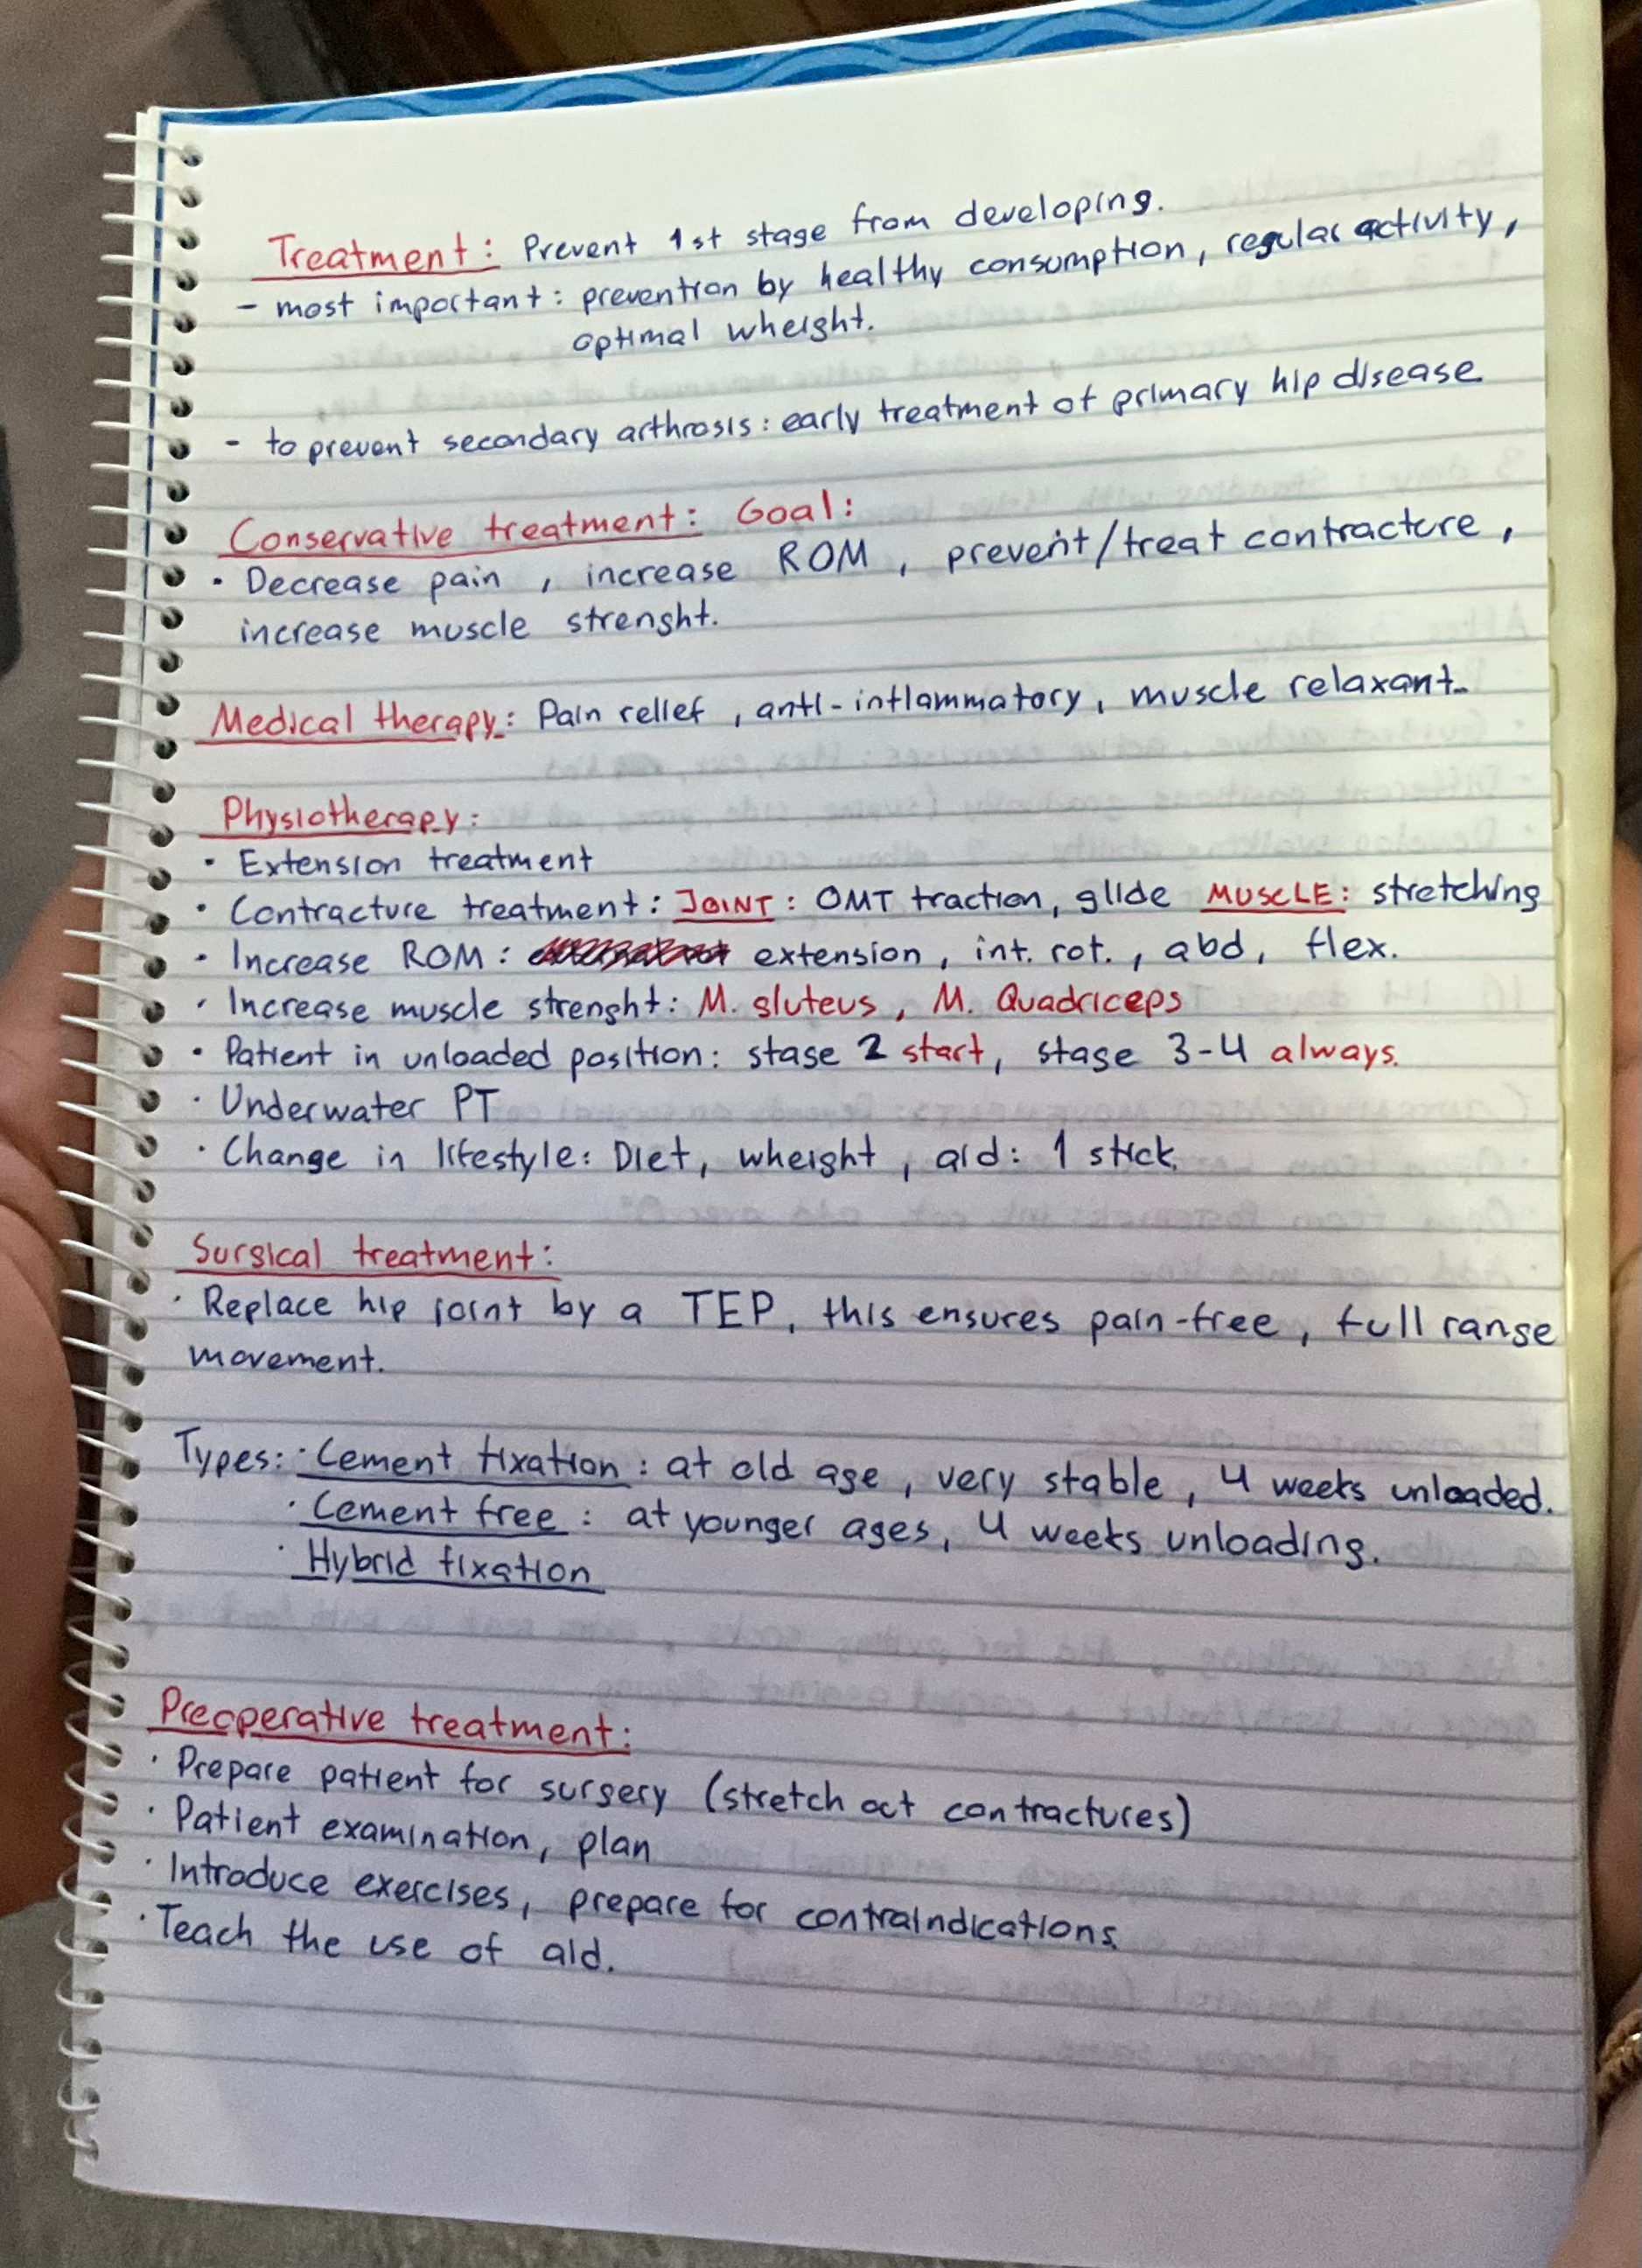 Treatment: Prevent 1st stage from developing.
- most important: prevention by healthy consumption, regular activity,
optimal wheight.
- to prevent secondary arthrosis: early treatment of primary hip disease
Conservative treatment: Goal:
• Decrease pain, increase ROM, prevent/treat contracture,
increase muscle strenght.
Medical therapy: Pain relief, anti-inflammatory, muscle relaxant.
Physiotherapy:
• Extension treatment
• Contracture treatment: JOINT: OMT traction, glide MUSCLE: stretching
• Increase ROM: extension, int. rot., abd, flex.
• Increase muscle strenght: M. gluteus, M. Quadriceps
• Patient in unloaded position: stage 2 start, stage 3-4 always.
• Underwater PT
• Change in lifestyle: Diet, wheight, aid: 1 stick.
Surgical treatment:
• Replace hip joint by a TEP, this ensures pain-free, full range
movement.
Types: • Cement fixation: at old age, very stable, 4 weeks unloaded.
• Cement free: at younger ages, 4 weeks unloading.
• Hybrid fixation
Preoperative treatment:
• Prepare patient for surgery (stretch out contractures)
• Patient examination, plan
• Introduce exercises, prepare for contraindications.
• Teach the use of aid.